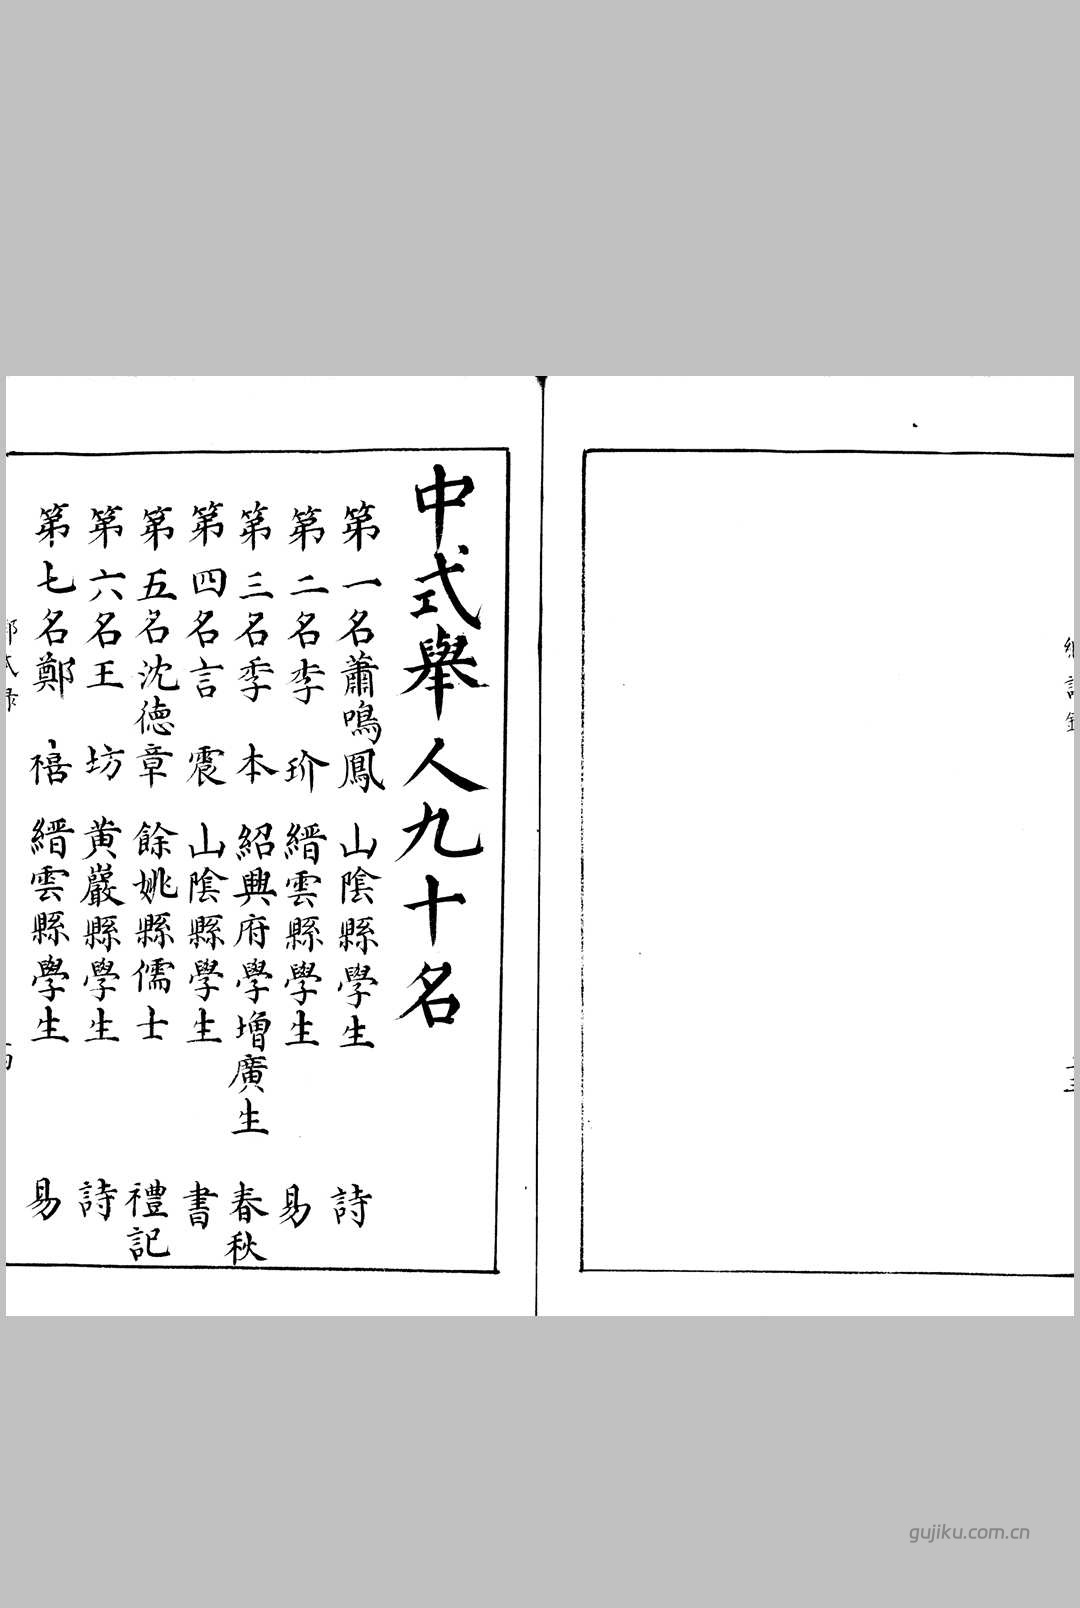 中式舉人九十名
第一名蕭鳴鳳 山陰縣學生 詩
第二名李 玠 縉雲縣學生 易
第三名季 本 紹興府學增廣生 春秋
第四名言 震 山陰縣學生 書
第五名沈德章 餘姚縣儒士 禮記
第六名王 坊 黃巖縣學生 詩
第七名鄭 禧 縉雲縣學生 易
gujiku.com.cn